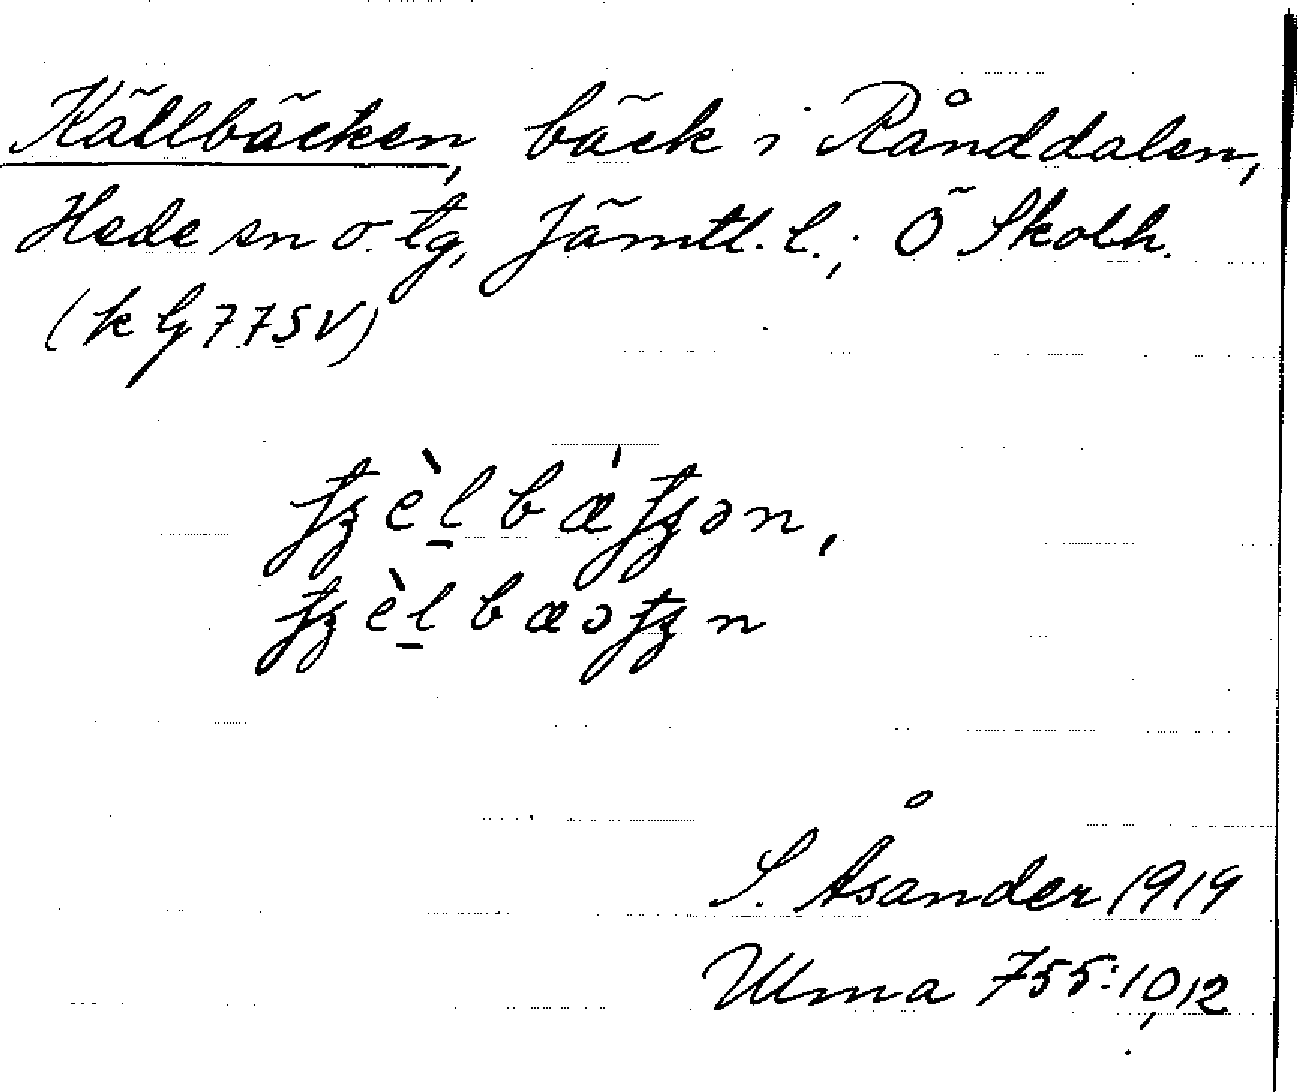 Källbäcken, bäck i Rånddalen,
Hede sn o. tg, Jämtl. l.; Ö Skolh.
(k G 775V)
tʒèl̠bæ̀tʒən,
tʒèl̠bæətʒn
S. Åsander 1919
Ulma 755:10,12